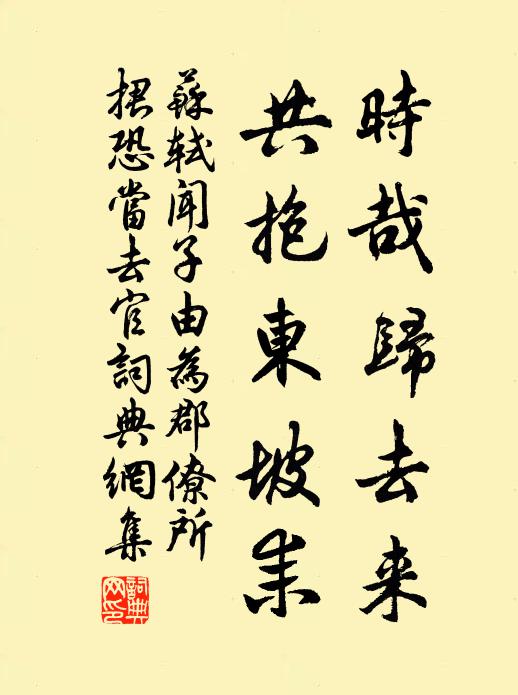 時哉歸去来
共抱東坡耒
蘇軾聞子由為郡僚所
捃恐當去官詞典網集
詞典
网印